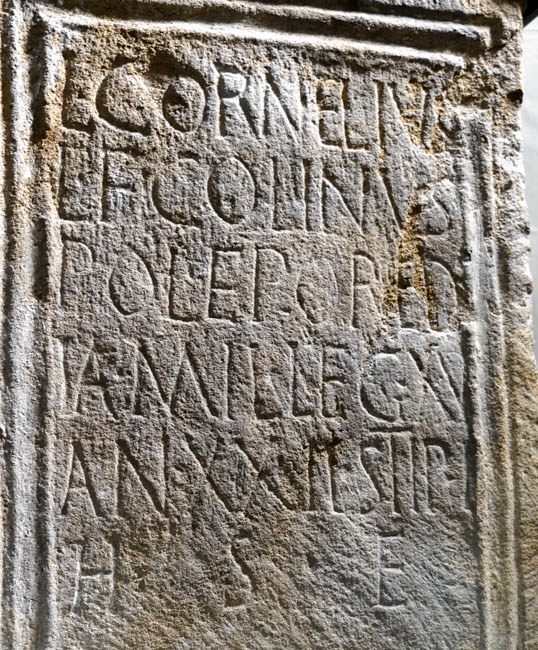 L CORNELIVS
L F COLINVS
POL EPORED
IA MIL LEG XV
AN STIP
H S E